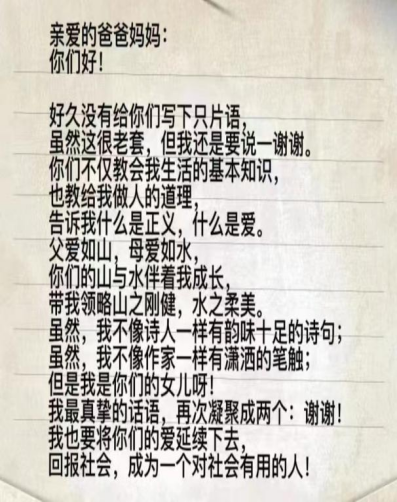 亲爱的爸爸妈妈：
你们好！
好久没有给你们写下只片语，
虽然这很老套，但我还是要说一谢谢。
你们不仅教会我生活的基本知识，
也教给我做人的道理，
告诉我什么是正义，什么是爱。
父爱如山，母爱如水，
你们的山与水伴着我成长，
带我领略山之刚健，水之柔美。
虽然，我不像诗人一样有韵味十足的诗句；
虽然，我不像作家一样有潇洒的笔触；
但是我是你们的女儿呀！
我最真挚的话语，再次凝聚成两个：谢谢！
我也要将你们的爱延续下去，
回报社会，成为一个对社会有用的人！